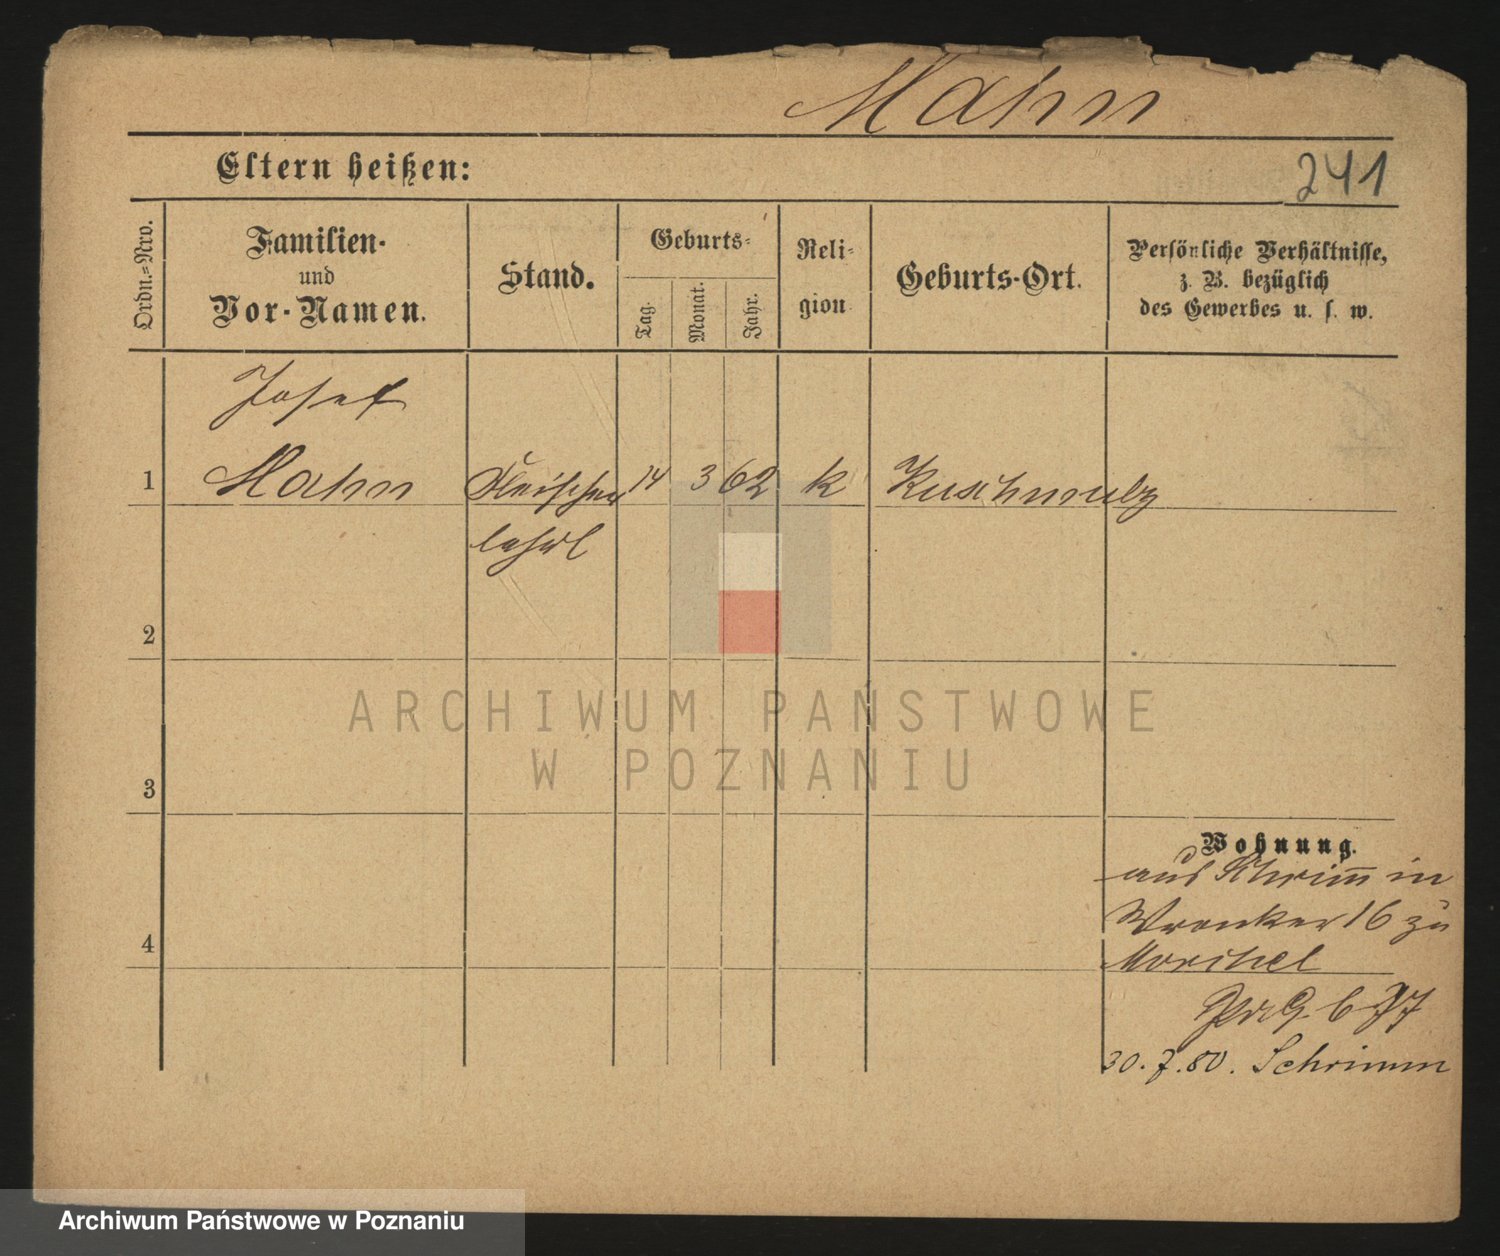 Mahn
Eltern heißen:
241
Ordn.=Nro.
Familien-
und
Vor-Namen.
Stand.
Geburts-
Tag.
Monat.
Jahr.
Reli-
gion
Geburts-Ort.
Persönliche Verhältnisse,
z. B. bezüglich
des Gewerbes u. s. w.
Josef
1 Mahn Fleischer 14 3 62 k
lehrl
2
ARCHIWUM PAŃSTWOWE
W POZNANIU
3
Wohnung.
aus Schrimm in
Wronker 16 zu
4
30.7.80. Schrimm
Archiwum Państwowe w Poznaniu